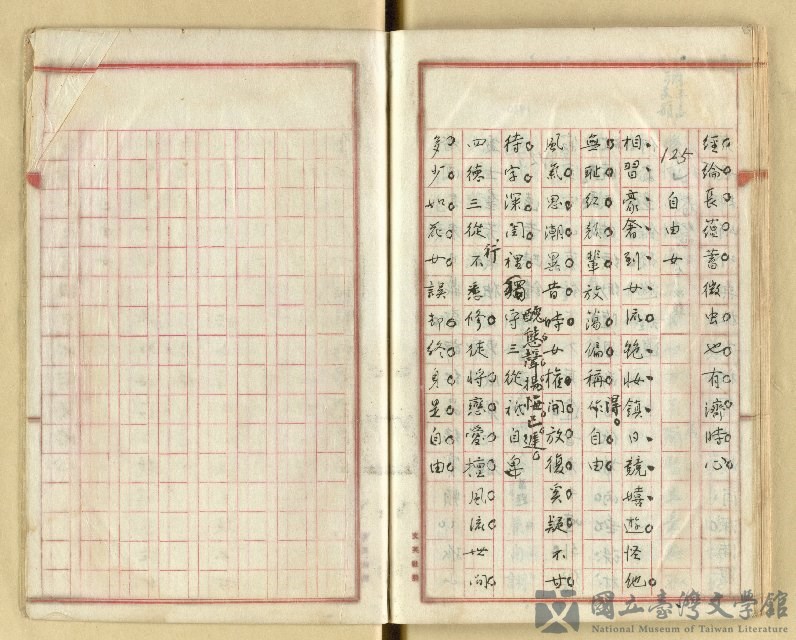 經綸長蘊蓄微虫也有濟時心
125 自由女
相習豪奢到女流艷妝鎮日競嬉遊怪他
無恥紅顏輩放蕩偏稱得自由
風氣思潮異昔時女權開放復奚疑不甘
待字深閨裡獨守三從祇自卑
醜態聲揚悔已遲
四德三從不悉修徒將戀愛擅風流世间
行
多少如花女誤却終身是自由
文英社製
國立臺灣文學館
National Museum of Taiwan Literature